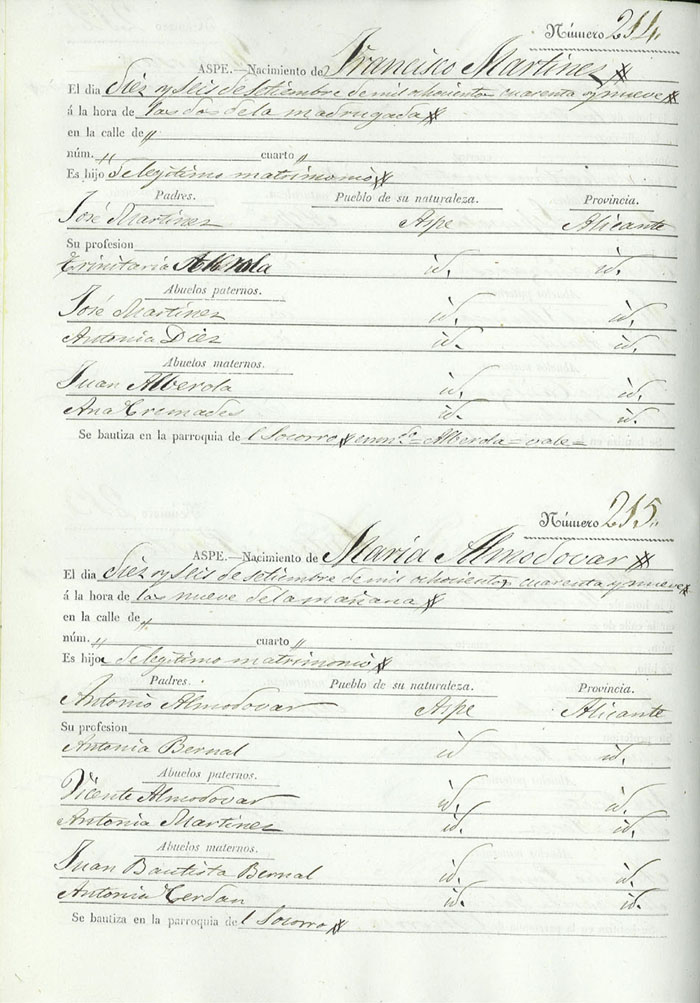 Número 214.
ASPE.—Nacimiento de Francisco Martinez
El dia diez y seis de setiembre de mil ochocientos cuarenta y nueve
á la hora de las dos de la madrugada
en la calle de "
núm. " cuarto "
Es hijo de legitimo matrimonio
Padres. Pueblo de su naturaleza. Provincia.
José Martinez Aspe Alicante
Su profesion
Trinitaria Alberola id. id.
Abuelos paternos.
José Martinez id. id.
Antonia Diez id. id.
Abuelos maternos.
Juan Alberola id. id.
Ana Cremades id. id.
Se bautiza en la parroquia de l Socorro enmdo=Alberola=vale=
Número 215.
ASPE.—Nacimiento de Maria Almodovar
El dia diez y seis de setiembre de mil ochocientos cuarenta y nueve
á la hora de las nueve de la mañana
en la calle de "
núm. " cuarto "
Es hija de legitimo matrimonio
Padres. Pueblo de su naturaleza. Provincia.
Antonio Almodovar Aspe Alicante
Su profesion
Antonia Bernal id id.
Abuelos paternos.
Vicente Almodovar id. id.
Antonia Martinez id. id.
Abuelos maternos.
Juan Bautista Bernal id. id.
Antonia Cerdan id. id.
Se bautiza en la parroquia de l Socorro